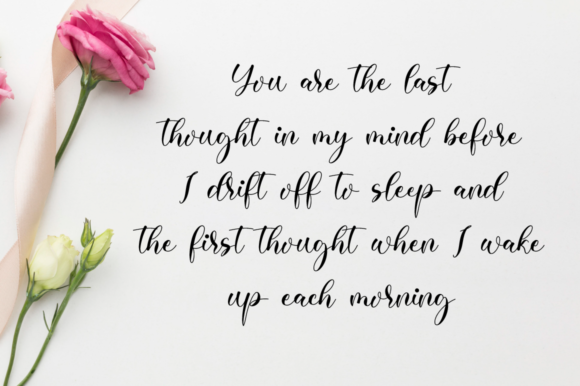 You are the last
thought in my mind before
I drift off to sleep and
the first thought when I wake
up each morning